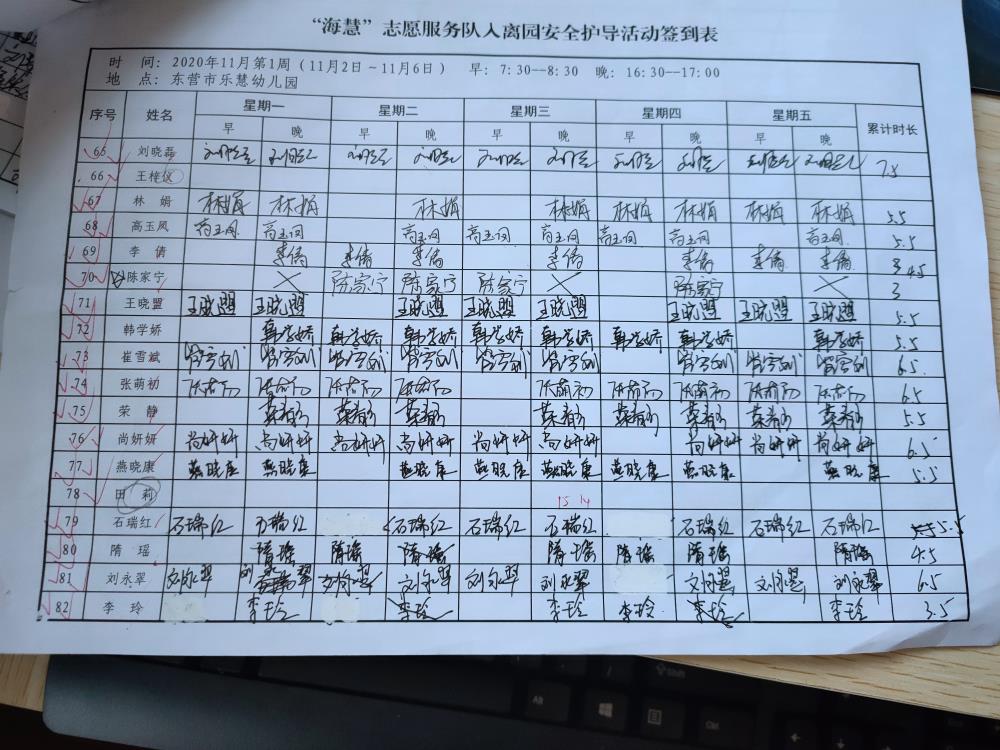 “海慧”志愿服务队入离园安全护导活动签到表
时 间: 2020年11月第1周（11月2日～11月6日） 早: 7:30--8:30 晚: 16:30--17:00
地 点: 东营市乐慧幼儿园
序号 姓名 星期一 星期二 星期三 星期四 星期五 累计时长
早 晚 早 晚 早 晚 早 晚 早 晚
65 刘晓磊 7.5
66 王桂仪
67 林 娟 林娟 林娟 林娟 林娟 林娟 林娟 林娟 林娟 5.5
68 高玉凤 高玉凤 高玉凤 高玉凤 高玉凤 高玉凤 高玉凤 高玉凤 高玉凤 5.5
69 李 倩 李倩 李倩 李倩 李倩 李倩 李倩 李倩 4.5
70 陈家宁 陈家宁 陈家宁 陈家宁 陈家宁 3
71 王晓盟 王晓盟 王晓盟 王晓盟 王晓盟 王晓盟 王晓盟 王晓盟 王晓盟 5.5
72 韩学娇 韩学娇 韩学娇 韩学娇 韩学娇 韩学娇 韩学娇 韩学娇 韩学娇 5.5
73 崔雪斌 6.5
74 张萌初 张萌初 张萌初 张萌初 张萌初 张萌初 张萌初 张萌初 张萌初 张萌初 6.5
75 荣 静 5.5
76 尚妍妍 尚妍妍 尚妍妍 尚妍妍 尚妍妍 尚妍妍 尚妍妍 尚妍妍 尚妍妍 尚妍妍 6.5
77 燕晓康 燕晓康 燕晓康 燕晓康 燕晓康 燕晓康 燕晓康 燕晓康 燕晓康 5.5
78 田 莉 15 14
79 石瑞红 石瑞红 石瑞红 石瑞红 石瑞红 石瑞红 石瑞红 石瑞红 石瑞红 5.5
80 隋 瑶 隋瑶 隋瑶 隋瑶 隋瑶 隋瑶 隋瑶 隋瑶 4.5
81 刘永翠 刘永翠 刘永翠 刘永翠 刘永翠 刘永翠 刘永翠 刘永翠 刘永翠 刘永翠 6.5
82 李 玲 李玲 李玲 李玲 李玲 李玲 李玲 3.5